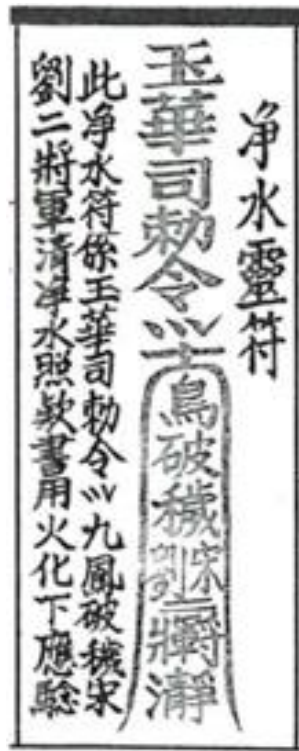 净水靈符
玉華司勅令
鳥破穢宋劉二將瀞
此净水符係玉華司勅令九鳳破穢宋
劉二將軍清净水照款書用火化下應驗